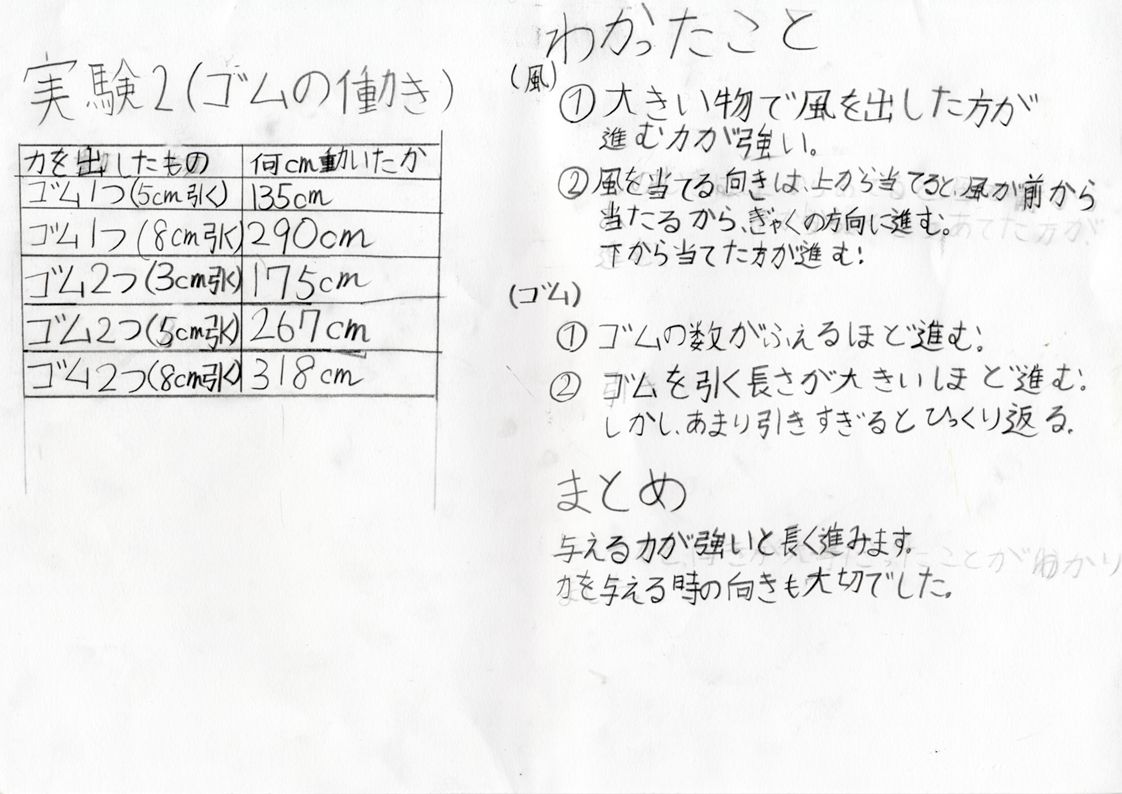 実験2(ゴムの働き)
力を出したもの 何cm動いたか
ゴム1つ(5cm引く) 135cm
ゴム1つ(8cm引く) 290cm
ゴム2つ(3cm引く) 175cm
ゴム2つ(5cm引く) 267cm
ゴム2つ(8cm引く) 318cm
わかったこと
(風)
① 大きい物で風を出した方が
進む力が強い。
② 風を当てる向きは、上から当てると、風が前から
当たるから、ぎゃくの方向に進む。
下から当てた方が進む!
(ゴム)
① ゴムの数がふえるほど進む!
② ゴムを引く長さが大きいほど進む!
しかし、あまり引きすぎるとひっくり返る。
まとめ
与える力が強いと長く進みます。
力を与える時の向きも大切でした。